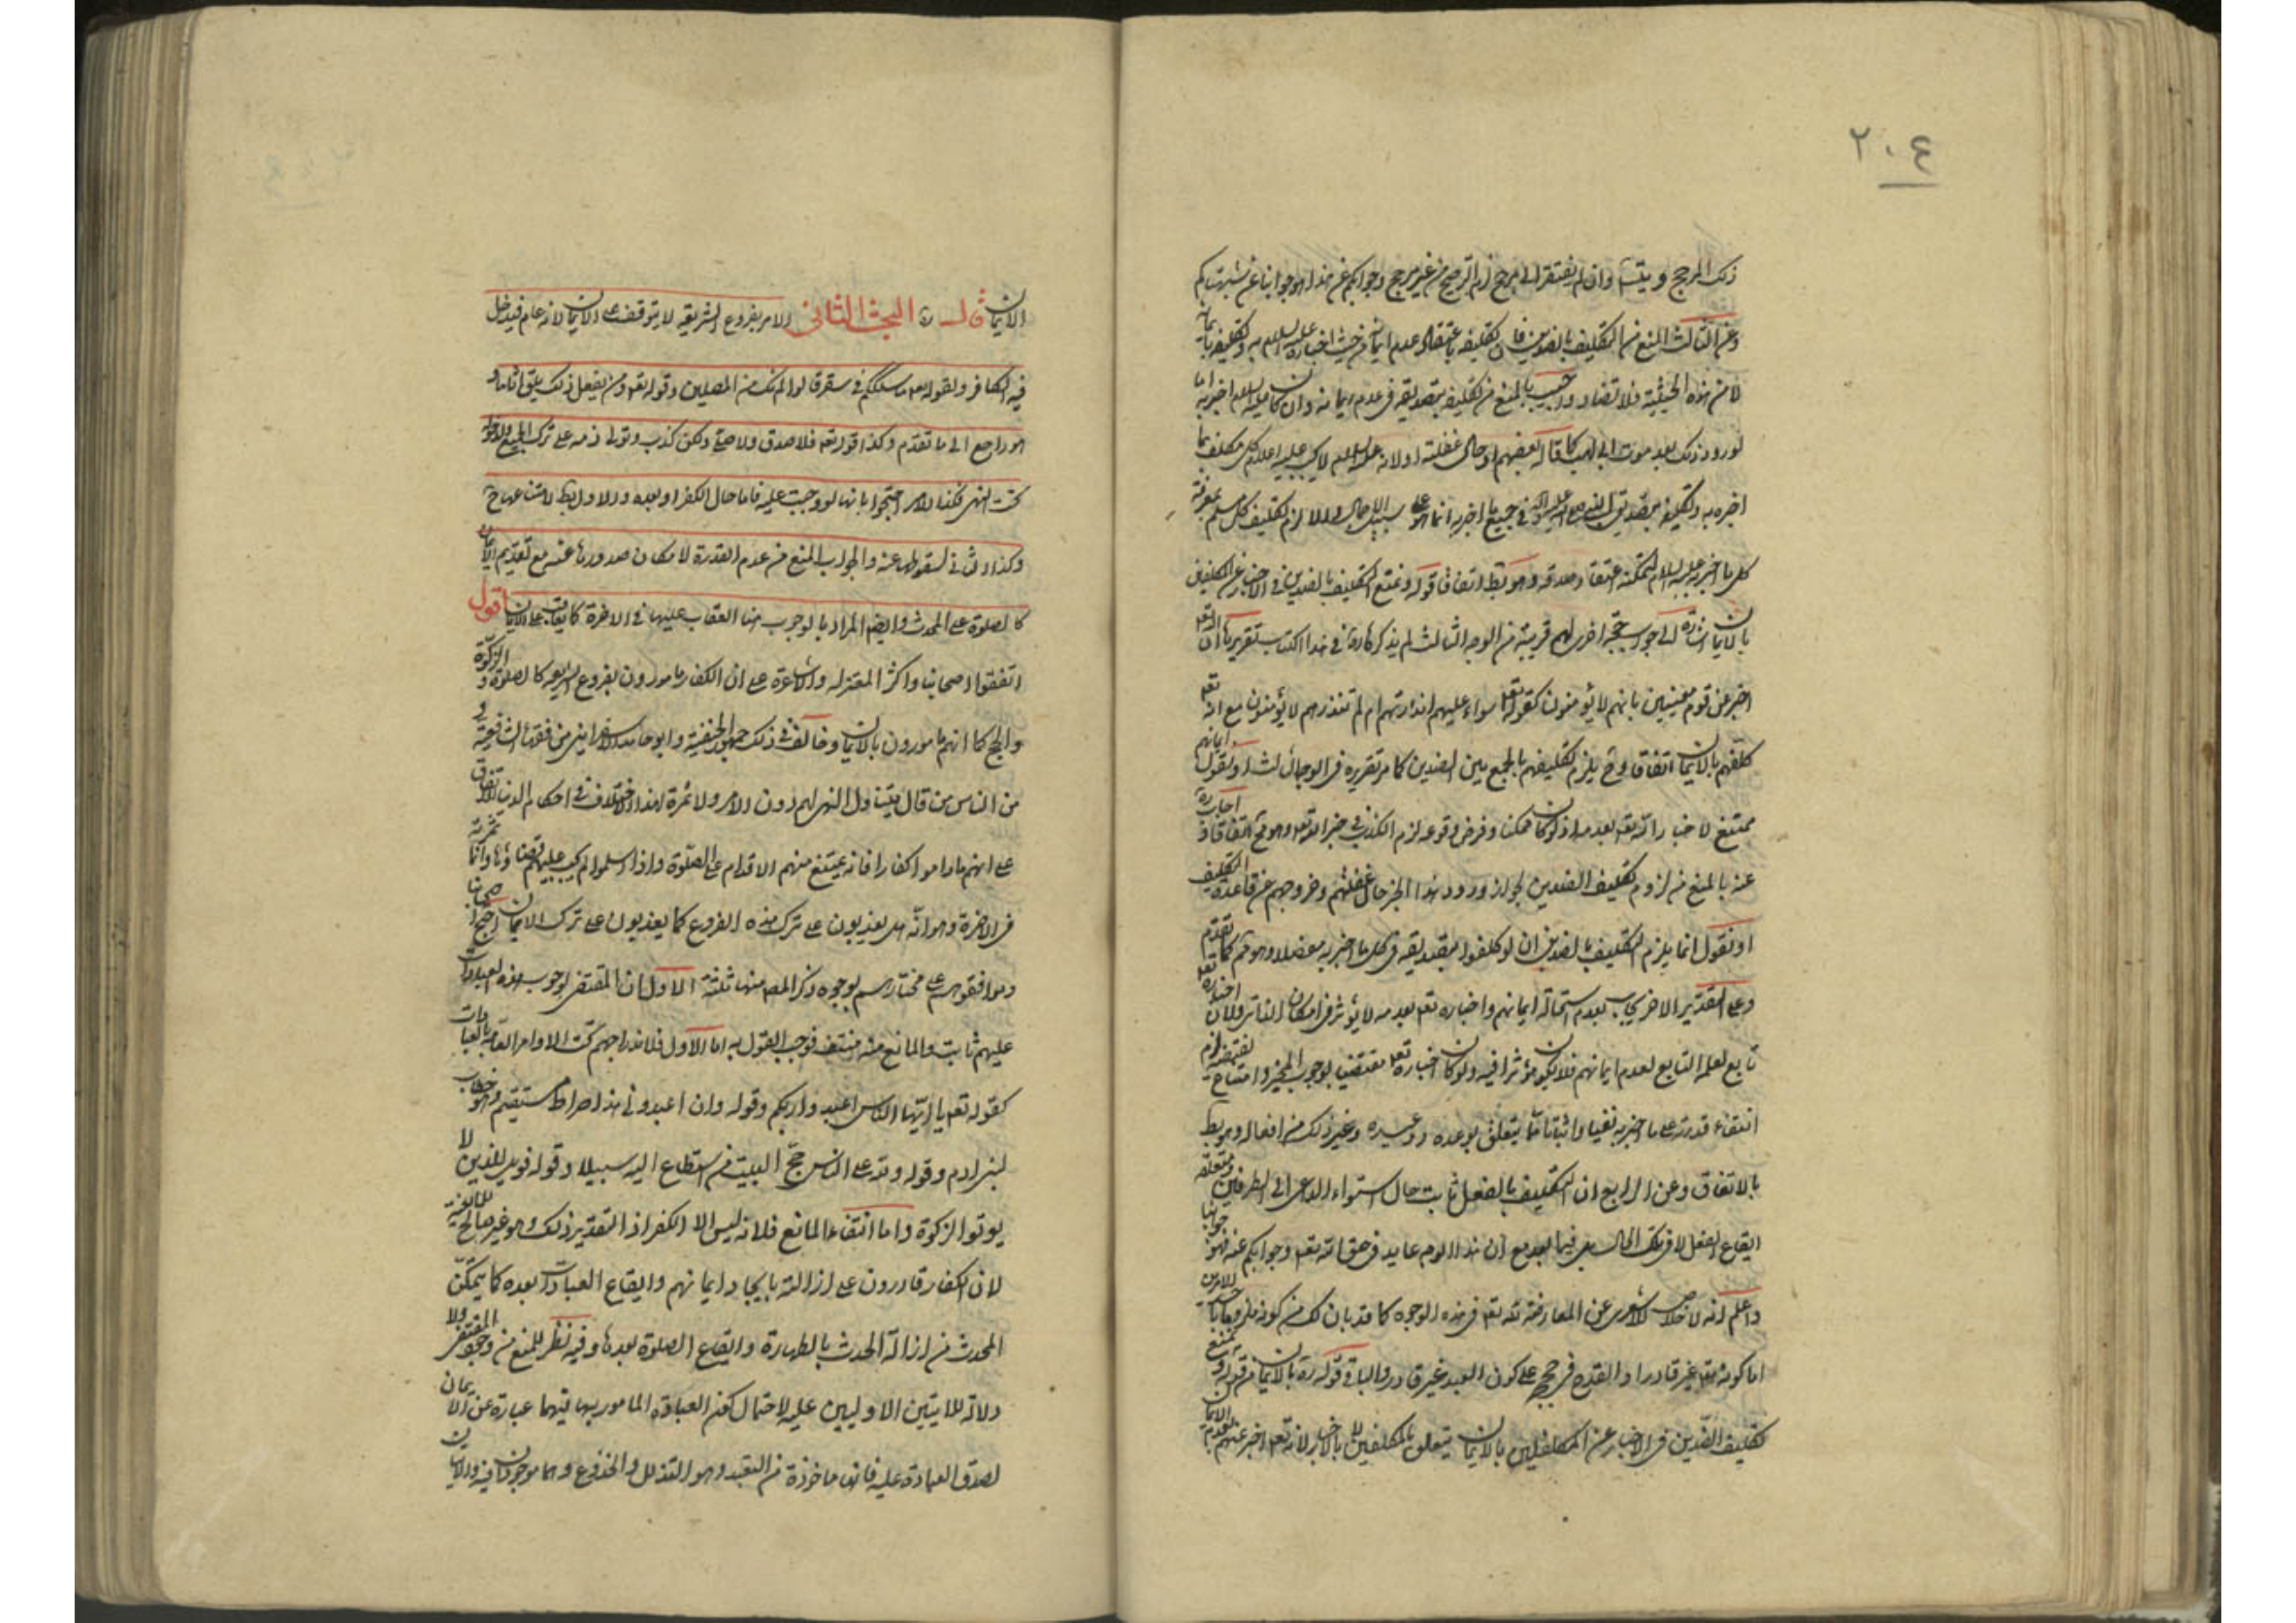 ٢٠٤
ذلك المرجح ويتس وان لم يفتقر الى مرجح لزم الترجيح من غير مرجح وجوابكم عن هذا هو جوابنا عن شبهتكم
وعن الثالث المنع من التكليف بالضدين فان تكليفه باعتقاد عدم ايمانه من حيث اخباره عليه السلام به وتكليفه بايمانه
لا من هذه الحيثية فلا تضاد واجيب بالمنع من تكليفه بتصديقه في عدم ايمانه وان كان عليه السلام اخبر به اما
لورود ذلك بعد موت ابي لهب كما قاله بعضهم او حال غفلته او لانه عليه السلام لا يجب عليه اعلام كل مكلف بما
اخبر به وتكليفه بتصديق النبي صلى الله عليه وآله في جميع ما اخبر به انما هو على سبيل الاجمال والا لزم تكليف كل مسلم بمعرفة
كل ما اخبر به عليه السلام ليمكنه اعتقاد صدقه وهو بط اتفاقا قوله ويمتنع التكليف بالضدين في الاخبار عن المكلفين
بالايمان اشارة الى جواب حجة اخرى لهم قريبة من الوجه الثالث لم يذكرها في هذا الكتاب تقريرها ان الله تعالى
اخبر عن قوم معينين بانهم لا يؤمنون كقوله تعالى سواء عليهم ءانذرتهم ام لم تنذرهم لا يؤمنون مع انه تعالى
كلفهم بالايمان اتفاقا وح يلزم تكليفهم بالجمع بين الضدين كما مر تقريره في الوجه الثالث او نقول ايمانهم
ممتنع لاخبار الله تعالى بعدمه اذ لو كان ممكنا وفرض وقوعه لزم الكذب في خبر الله تعالى وهو مح اتفاقا اجاب
عنه بالمنع من لزوم تكليف الضدين لجواز ورود هذا الخبر حال غفلتهم وخروجهم عن قاعدة التكليف
او نقول انما يلزم التكليف بالضدين ان لو كلفوا بتصديقه في كل ما اخبر به مفصلا وهو مم كما تقدم
وعلى التقدير الاخر يجاب بعدم استحالة ايمانهم واخباره تعالى بعدمه لا يؤثر في امكان الذاتي ولان اخباره تعالى
تابع لعلمه التابع لعدم ايمانهم فلا يكون مؤثرا فيه ولو كان اخباره تعالى مقتضيا لوجوب المخبر وامتناع نقيضه لزم
انتفاء قدرته على ما اخبر به نفيا واثباتا مما يتعلق بوعده ووعيده وغير ذلك من افعاله وهو بط
بالاتفاق وعن الرابع ان التكليف بالفعل ثابت حال استواء الداعي الى الطرفين ومتعلقه
ايقاع الفعل لا في تلك الحال بل فيما بعد مع ان هذا لازم عايد في حق الله تعالى وجوابكم عنه فهو جوابنا
واعلم انه لا خلاص للاشعري عن المعارضة لله تعالى في هذه الوجوه كما قد بان لك من كونه
اما كونه تعالى غير قادر او القدح في حججه على كون العبد غير قادر والباقي قوله ره بالايمان من قوله ويمتنع
تكليف الضدين في الاخبار عن المكلفين بالايمان يتعلق بالمكلفين لا بالاخبار لانه تعالى اخبر عنهم بعدم الايمان
الايمان قال ره البحث الثاني الامر بفروع الشريعة لا يتوقف على الايمان لانه عام فيدخل
فيه الكافر ولقوله تعالى ما سلككم في سقر قالوا لم نك من المصلين وقوله تعالى ومن يفعل ذلك يلق اثاما و
هو راجع الى ما تقدم وكذا قوله تعالى فلا صدق ولا صلى ولكن كذب وتولى ذمه على ترك الجميع ولدخوله
تحت النهي فكذا الامر احتجوا بانها لو وجبت عليه فاما حال الكفر او بعده والاول بط لامتناعها ح
وكذا الثاني لسقوطها عنه والجواب المنع من عدم القدرة لامكان صدورها عنه مع تقديم الايمان
كالصلوة على المحدث وايضا المراد بالوجوب هنا العقاب عليها في الاخرة كما يعاقب على الايمان اقول
اتفقوا اصحابنا واكثر المعتزله والاشاعرة على ان الكفار مامورون بفروع الشريعة كالصلوة والزكوة
والحج كما انهم مامورون بالايمان وخالف في ذلك جمهور الحنفية وابو حامد الاسفرايني من فقهاء الشافعية و
من الناس من قال يتناول النهي لهم دون الامر ولا ثمرة لهذا الاختلاف في احكام الدنيا للاتفاق
على انهم ما داموا كفارا فانه يمتنع منهم الاقدام على الصلوة واذا اسلموا لم يجب عليهم قضاؤها وانما ثمرته
في الاخرة وهو انه هل يعذبون على ترك هذه الفروع كما يعذبون على ترك الايمان احتج اصحابنا
وموافقوهم على مختارهم بوجوه ذكر المص منها ثلثة الاول ان المقتضى لوجوب هذه العبادات
عليهم ثابت والمانع منه منتف فوجب القول به اما الاول فلاندراجهم تحت الاوامر العامة بالعبادات
كقوله تعالى يا ايها الناس اعبدوا ربكم وقوله وان اعبدوني هذا صراط مستقيم وهو خطاب
لبني ادم وقوله ولله على الناس حج البيت من استطاع اليه سبيلا وقوله فويل للمشركين الذين لا
يوتوا الزكوة واما انتفاء المانع فلانه ليس الا الكفر اذ التقدير ذلك وهو غير صالح للمانعية
لان الكفار قادرون على ازالته بايجاد ايمانهم وايقاع العبادات بعده كما يتمكن
المحدث من ازالة الحدث بالطهارة وايقاع الصلوة بعدها وفيه نظر للمنع من وجود المقتضى ولا
دلالة للايتين الاوليين عليه لاحتمال كون العبادة المامور بها فيهما عبارة عن الايمان
لصدق العبادة عليه فانها ماخوذة من التعبد وهو التذلل والخضوع وهما موجودان فيه والايتان